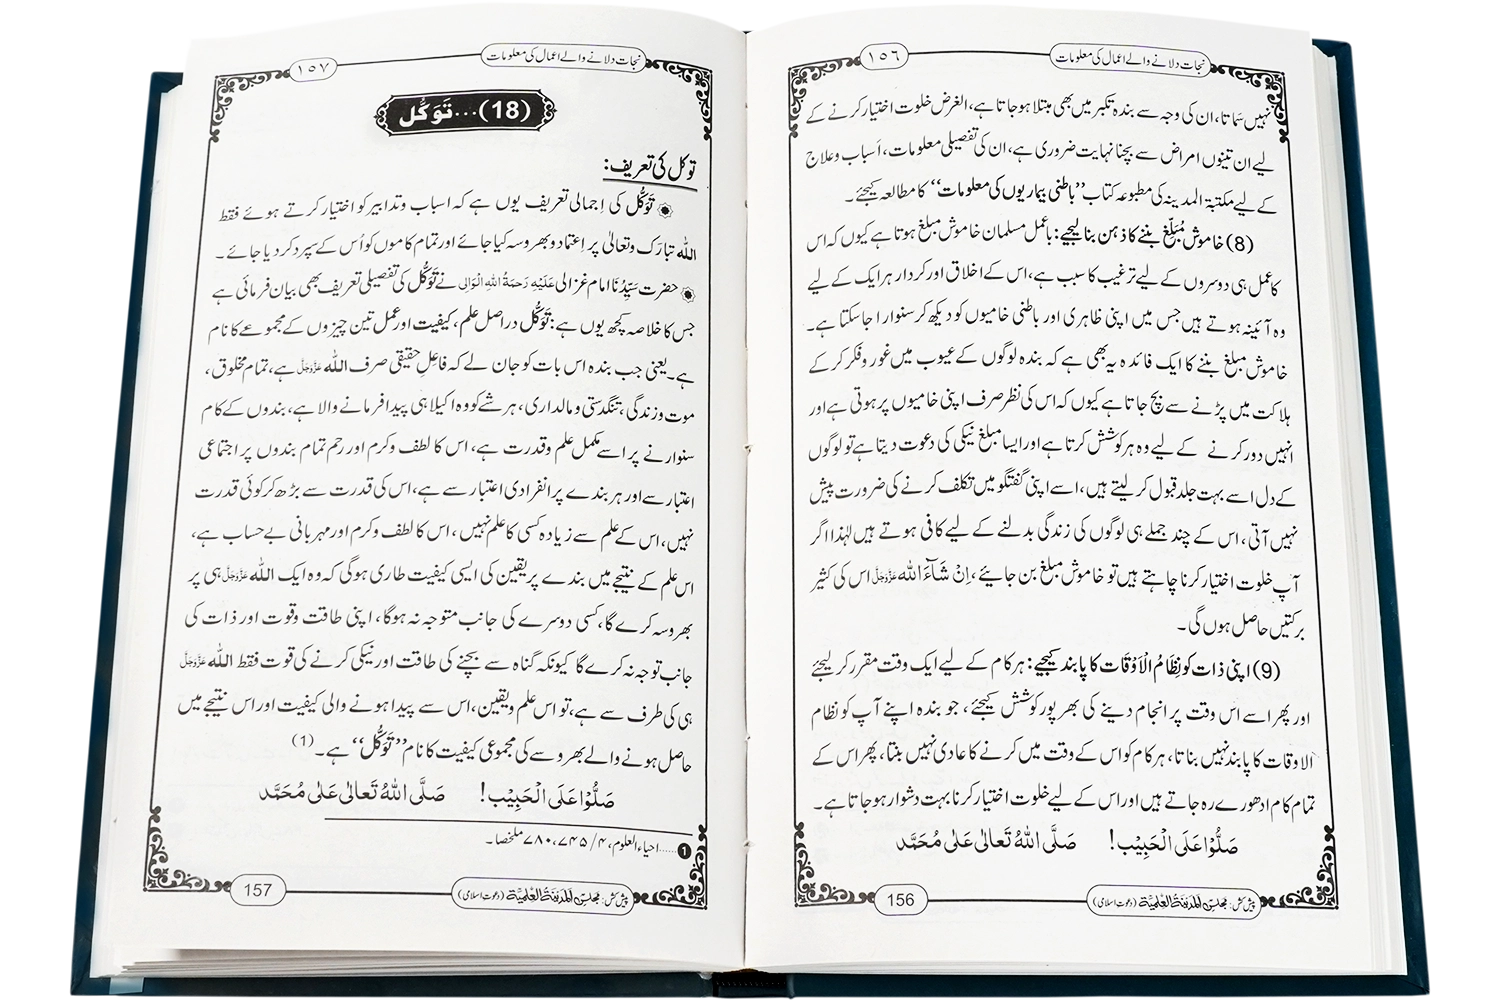 نجات دلانے والے اعمال کی معلومات
١٥٦
نہیں سَماتا، ان کی وجہ سے بندہ تکبر میں بھی مبتلا ہوجاتا ہے، الغرض خلوت اختیار کرنے کے
لیے ان تینوں امراض سے بچنا نہایت ضروری ہے، ان کی تفصیلی معلومات، اَسباب وعلاج
کے لیے مکتبۃ المدینہ کی مطبوعہ کتاب ”باطنی بیماریوں کی معلومات“ کا مطالعہ کیجئے۔
(8) خاموش مُبَلِّغ بننے کا ذہن بنا لیجیے: باعمل مسلمان خاموش مبلغ ہوتا ہے کیوں کہ اس
کا عمل ہی دوسروں کے لیے ترغیب کا سبب ہے، اس کے اخلاق اور کردار ہر ایک کے لیے
وہ آئینہ ہوتے ہیں جس میں اپنی ظاہری اور باطنی خامیوں کو دیکھ کر سنوارا جاسکتا ہے۔
خاموش مبلغ بننے کا ایک فائدہ یہ بھی ہے کہ بندہ لوگوں کے عیوب میں غور وفکر کرکے
ہلاکت میں پڑنے سے بچ جاتا ہے کیوں کہ اس کی نظر صرف اپنی خامیوں پر ہوتی ہے اور
انہیں دور کرنے کے لیے وہ ہر کوشش کرتا ہے اور ایسا مبلغ نیکی کی دعوت دیتا ہے تو لوگوں
کے دل اسے بہت جلد قبول کرلیتے ہیں، اسے اپنی گفتگو میں تکلف کرنے کی ضرورت پیش
نہیں آتی، اس کے چند جملے ہی لوگوں کی زندگی بدلنے کے لیے کافی ہوتے ہیں لہٰذا اگر
آپ خلوت اختیار کرنا چاہتے ہیں تو خاموش مبلغ بن جائیے، اِنْ شَآءَ اللہ عَزَّوَجَلَّ اس کی کثیر
برکتیں حاصل ہوں گی۔
(9) اپنی ذات کو نِظَامُ الْاَوْقَات کا پابند کیجیے: ہر کام کے لیے ایک وقت مقرر کرلیجئے
اور پھر اسے اس وقت پر انجام دینے کی بھرپور کوشش کیجئے، جو بندہ اپنے آپ کو نظام
الاوقات کا پابند نہیں بناتا، ہر کام کو اس کے وقت میں کرنے کا عادی نہیں بنتا، پھر اس کے
تمام کام ادھورے رہ جاتے ہیں اور اس کے لیے خلوت اختیار کرنا بہت دشوار ہوجاتا ہے۔
صَلُّوْا عَلَی الْحَبِیْب! صَلَّی اللہُ تَعَالٰی عَلٰی مُحَمَّد
پیش کش: مجلس المدینۃ العلمیۃ (دعوت اسلامی)
156
نجات دلانے والے اعمال کی معلومات
١٥٧
(18)...تَوَکُّل
توکل کی تعریف:
تَوَکُّل کی اِجمالی تعریف یوں ہے کہ اسباب وتدابیر کو اختیار کرتے ہوئے فقط
اللہ تبارَک وتعالیٰ پر اِعتماد وبھروسہ کیا جائے اور تمام کاموں کو اُس کے سپرد کردیا جائے۔
حضرت سَیِّدُنَا امام غزالی عَلَیْہِ رَحْمَۃُ اللہِ الْوَالِی نے تَوَکُّل کی تفصیلی تعریف بھی بیان فرمائی ہے
جس کا خلاصہ کچھ یوں ہے: تَوَکُّل دراصل علم، کیفیت اور عمل تین چیزوں کے مجموعے کا نام
ہے۔ یعنی جب بندہ اس بات کو جان لے کہ فاعلِ حقیقی صرف اللہ عَزَّوَجَلَّ ہے، تمام مخلوق،
موت وزندگی، تنگدستی ومالداری، ہر شے کو وہ اکیلا ہی پیدا فرمانے والا ہے، بندوں کے کام
سنوارنے پر اسے مکمل علم وقدرت ہے، اس کا لطف وکرم اور رحم تمام بندوں پر اجتماعی
اعتبار سے اور ہر بندے پر انفرادی اعتبار سے ہے، اس کی قدرت سے بڑھ کر کوئی قدرت
نہیں، اس کے علم سے زیادہ کسی کا علم نہیں، اس کا لطف وکرم اور مہربانی بے حساب ہے،
اس علم کے نتیجے میں بندے پر یقین کی ایسی کیفیت طاری ہوگی کہ وہ ایک اللہ عَزَّوَجَلَّ ہی پر
بھروسہ کرے گا، کسی دوسرے کی جانب متوجہ نہ ہوگا، اپنی طاقت وقوت اور ذات کی
جانب توجہ نہ کرے گا کیونکہ گناہ سے بچنے کی طاقت اور نیکی کرنے کی قوت فقط اللہ عَزَّوَجَلَّ
ہی کی طرف سے ہے، تو اس علم ویقین، اس سے پیدا ہونے والی کیفیت اور اس نتیجے میں
حاصل ہونے والے بھروسے کی مجموعی کیفیت کا نام ”تَوَکُّل“ ہے۔(1)
صَلُّوْا عَلَی الْحَبِیْب! صَلَّی اللہُ تَعَالٰی عَلٰی مُحَمَّد
1.....احیاء العلوم، ۴/ ۷۴۵، ۷۸۰ ملخصا۔
پیش کش: مجلس المدینۃ العلمیۃ (دعوت اسلامی)
157